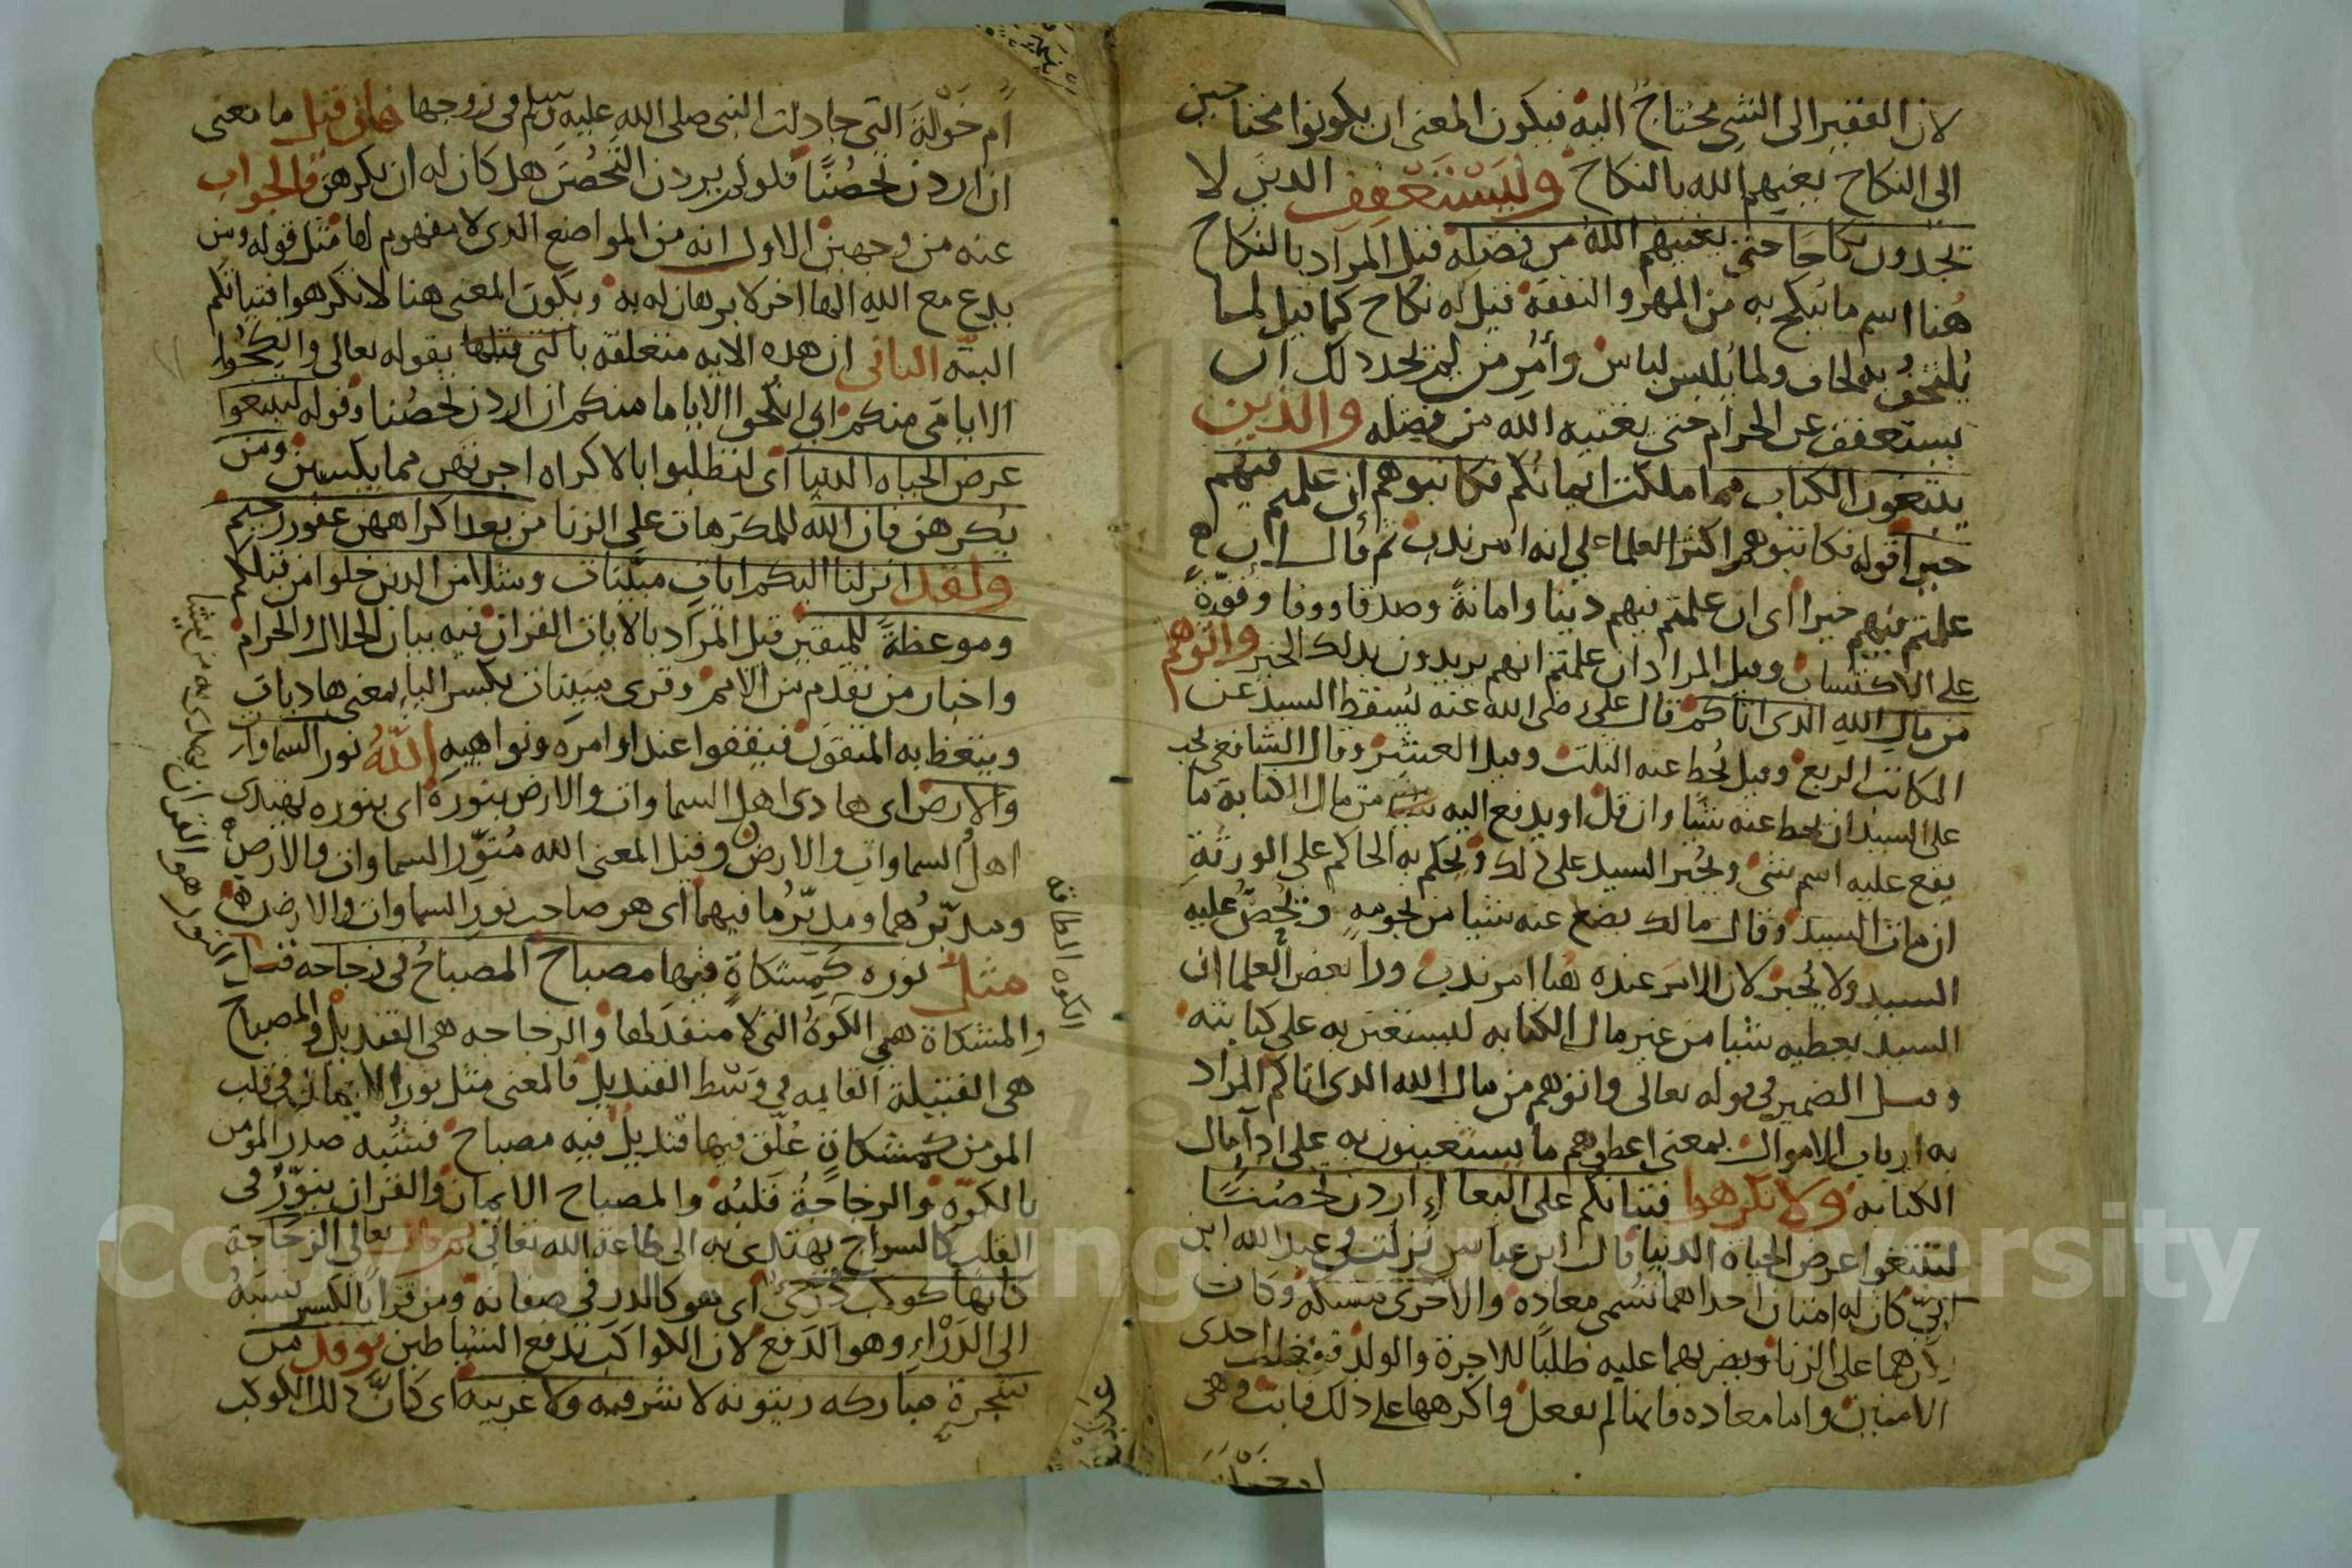 لان الفقير الى الشى محتاج اليه فيكون المعنى ان يكونوا محتاجين
الى النكاح يغنيهم الله بالنكاح وليستعفف الذين لا
يجدون نكاحا حتى يغنيهم الله من فضله قيل المراد بالنكاح
هنا اسم ما ينكح به من المهر والنفقة قيل له نكاح كما قيل لما
يلتحف به لحاف ولما يلبس لباس وأمر من لم يجد ذلك ان
يستعفف عن الحرام حتى يغنيه الله من فضله والذين
يبتغون الكتاب مما ملكت ايمانكم فكاتبوهم إن علمتم فيهم
خيرا قوله فكاتبوهم اكثر العلما على انه امر ندب ثم قال ان
علمتم فيهم خيرا أى ان علمتم فيهم دينا وامانة وصدقا ووفا وقوة
على الاكتساب وقيل المراد ان علمتم انهم يريدون بذلك الخير واتوهم
من مال الله الذى اتاكم قال على رضى الله عنه يسقط السيد عن
المكاتب الربع وقيل يحط عنه الثلث وقيل العشر وقال الشافعى يجب
على السيد ان يحط عنه شيا وان قل او يدفع اليه من مال الكتابة ما
يقع عليه اسم شى ويجبر السيد على ذلك ويحكم به الحاكم على الورثة
ان مات السيد وقال مالك يضع عنه شيا من نجومه ويحض عليه
السيد ولا يجبر لان الامر عنده هنا امر ندب ورا بعض العلما ان
السيد يعطيه شيا من غير مال الكتابه ليستعين به على كتابته
وقيل الضمير فى قوله تعالى واتوهم من مال الله الذى اتاكم المراد
به ارباب الاموال بمعنى اعطوهم ما يستعينون به على ادآ مال
الكتابه ولا تكرهوا فتياتكم على البغا إن اردن تحصنا
لتبتغوا عرض الحياة الدنيا قال ابن عباس نزلت فى عبد الله ابن
ابى كان له امتان احداهما تسمى معاذة والاخرى مسيكة وكان
يكرههما على الزنا ويضربهما عليه طلبا للاجرة والولد احدى
الامتين واما معاذه فانها لم تفعل واكرهها على ذلك فابت وهى
ام خولة
ام خولة التى جادلت النبى صلى الله عليه وسلم فى زوجها فان قيل ما معنى
ان اردن تحصنا فلو لم يردن التحصن هل كان له ان يكرههن فالجواب
عنه من وجهين الاول انه من المواضع الذى لا مفهوم لها مثل قوله ومن
يدع مع الله الها اخر لا برهان له به ويكون المعنى هنا لا تكرهوا فتياتكم
البتة الثانى ان هذه الايه متعلقة بالتى قبلها بقوله تعالى وانكحوا
الايامى منكم اى انكحوا الاياما منكم ان اردن تحصنا وقوله لتبتغوا
عرض الحياه الدنيا أى لتطلبوا بالاكراه اجرتهن مما يكسبن ومن
يكرههن فان الله للمكرهات على الزنا من بعد اكراههن غفور رحيم
ولقد انزلنا اليكم ايات مبينات ومثلا من الذين خلوا من قبلكم
وموعظة للمتقين قيل المراد بالايات القران فيه بيان الحلال والحرام
واخبار من تقدم من الامم وقرى مبينات بكسر اليا بمعنى هاديات
ويتعظ به المتقون فيقفوا عند اوامره ونواهيه الله نور السماوات
والارض اى هادى اهل السماوات والارض بنوره اى بنوره يهتدى
اهل السماوات والارض وقيل المعنى الله منور السماوات والارض
ومدبرهما ومدبر ما فيهما أى هو صاحب نور السماوات والارض
مثل نوره كمشكاة فيها مصباح المصباح فى زجاجه قيل
والمشكاة هى الكوة التى لا منفذ لها والزجاجه هى القنديل والمصباح
هى الفتيلة القايمه فى وسط القنديل فالمعنى مثل نور الايمان فى قلب
المومن كمشكاة علق فيها قنديل فيه مصباح فشبه صدر المومن
بالكوة والزجاجة قلبه والمصباح الايمان والقران ينور فى
القلب كالسراج يهتدى به الى طاعة الله تعالى ثم قال تعالى الزجاجة
كانها كوكب درى أى هو كالدر فى صفائه ومن قرا بالكسر نسبه
الى الدرْاءِ وهو الدفع لان الكواكب تدفع الشياطين توقد من
شجرة مباركه زيتونه لا شرقيه ولا غربيه اى كان ذلك الكوكب
الكوه الطاقه
النور هو القران يهدى به من يشا